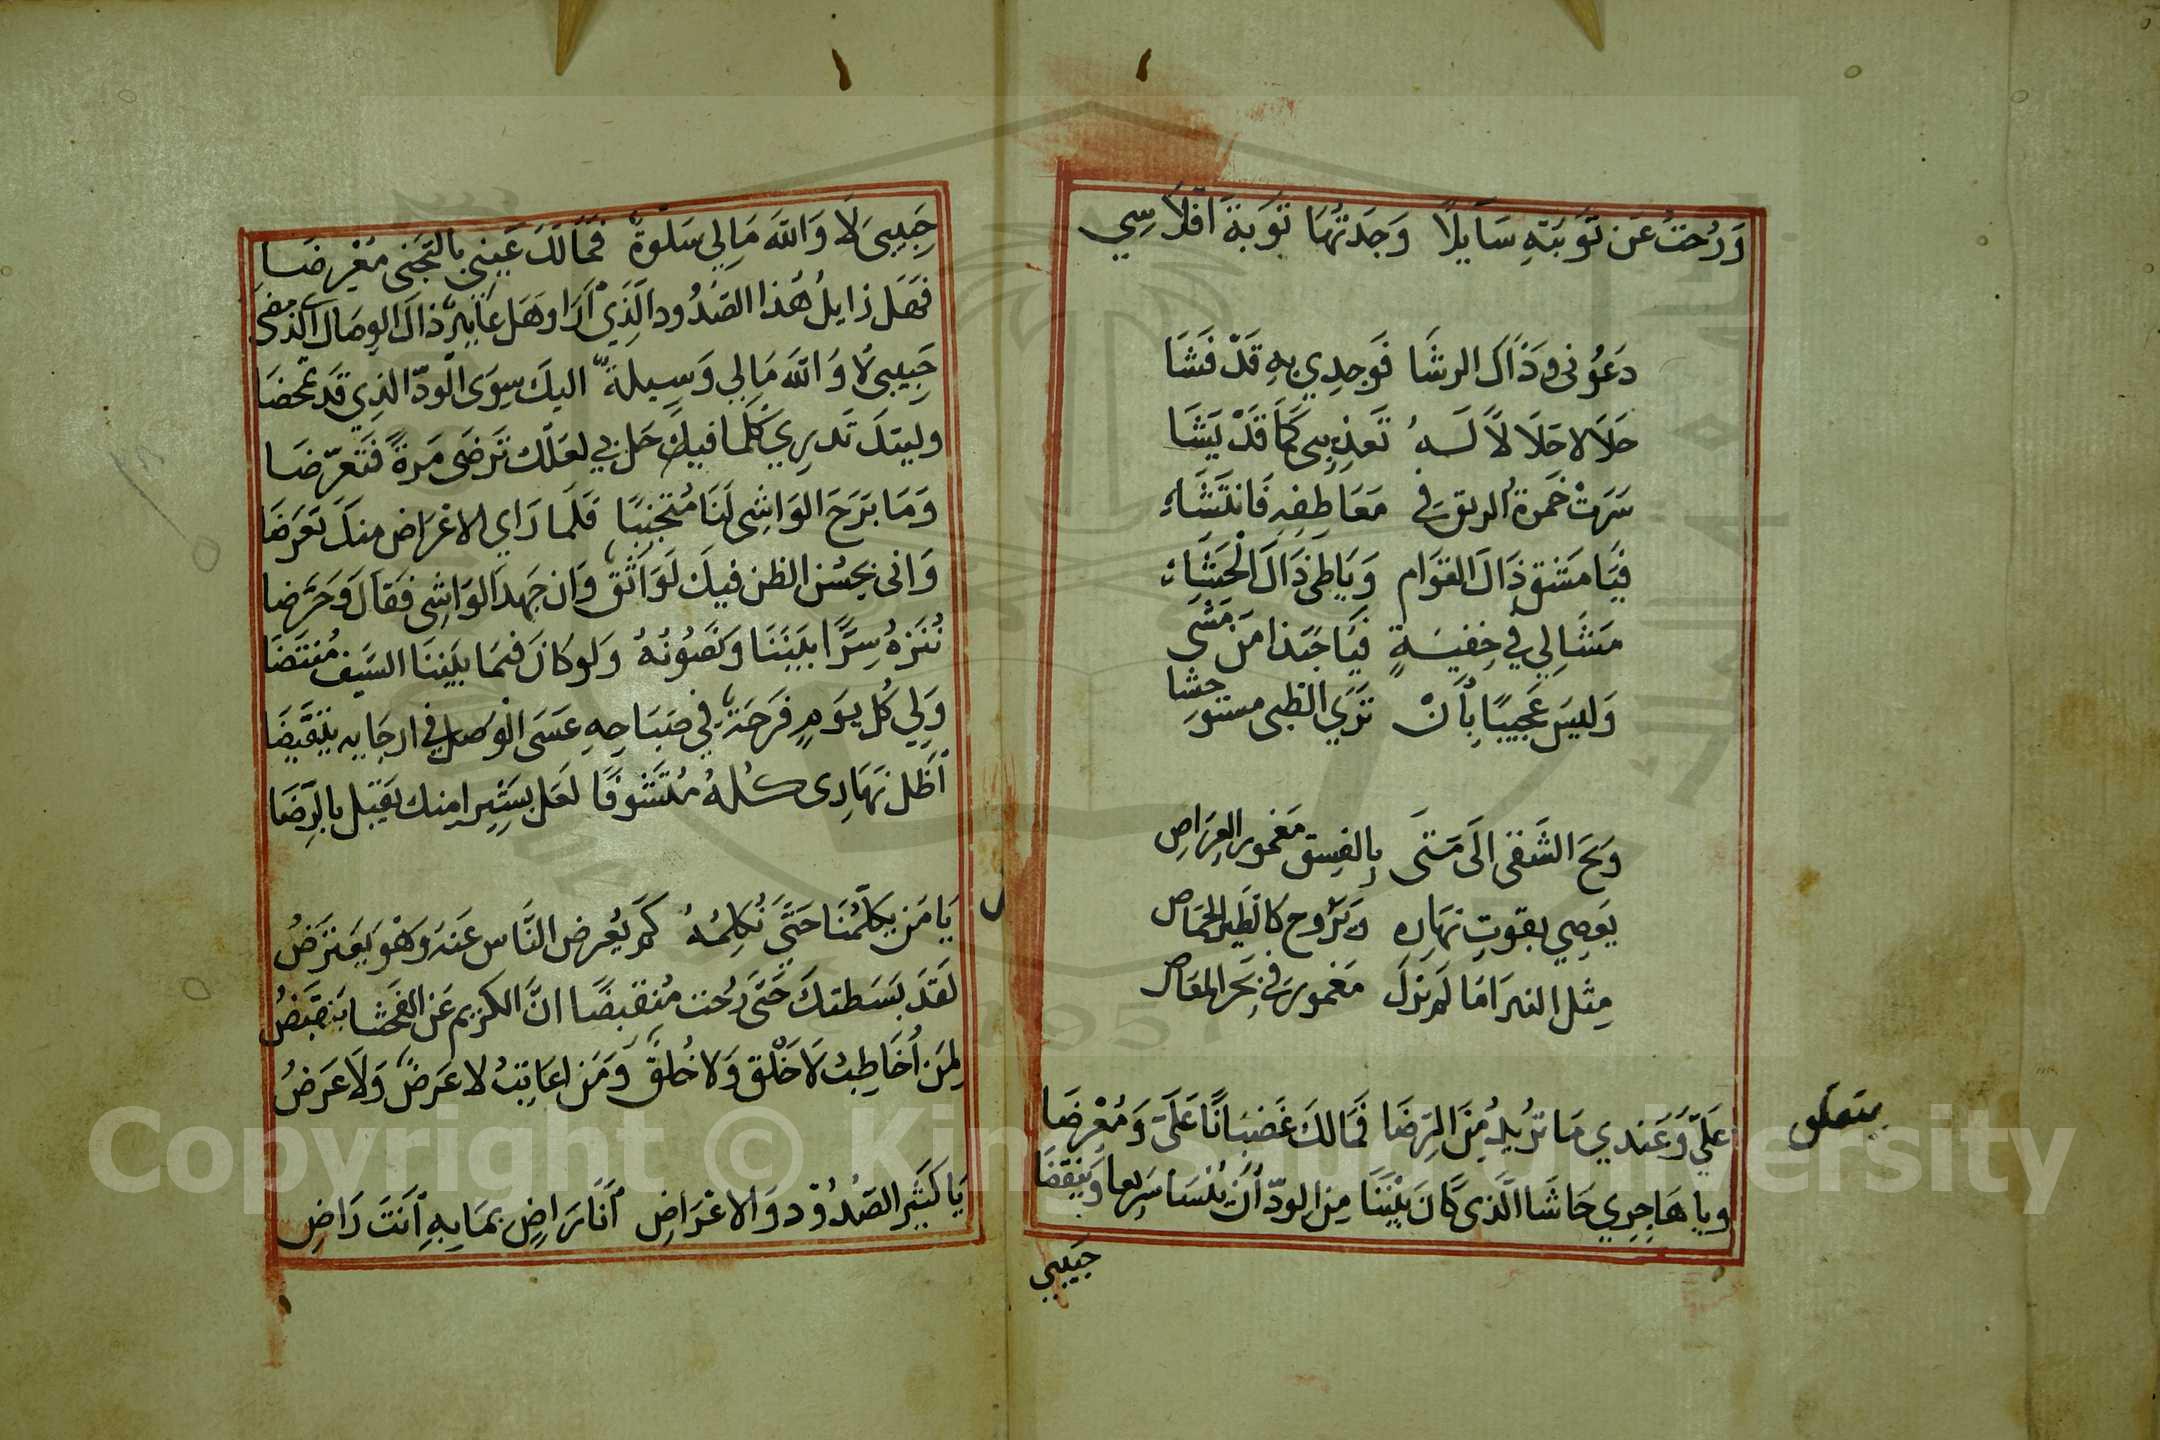 وَرُحْتُ عَن تَوْبَتِهِ سَايِلًا وَجَدتُهَا تَوْبَةَ افْلَاسِي
دَعُونى وَذَاكَ الرشَا فَوَجدِي بِهِ قَدْ فَشَا
حَلَالا حَلَالًا لَهُ تَعذِيبى كَمَا قَدْ يَشَا
سَرَتْ خَمرَةُ الريق فِي مَعَاطِفِهِ فَانتَشَاءِ
فَيَا مَشق ذَاكَ القوَام وَيَاطَى ذَاكَ الْحَشَاءِ
مَشَا لِي فِي خِفيَةٍ فَيَا حَبَّذَا مَن مَشَى
وَليسَ عَجيبًا بِأَنْ تَرَي الظبى مستوحِشا
وَيحَ الشَقى الَى مَتَى بِالفِسق مَغمُور العِرَاصِ
يَعصِي بقوتِ نهَارِه وَيَرُوح كالطَير الخمَاصِ
مِثل النهرَ امَا لَم يَزلَ مَغمُورًا فى بَحر المعَاصِ
عَليَّ وَعَندي مَا تُريدُ مِنَ الرِضَا فَمَالكَ غَضبَانًا عَلَيَّ وَمُعْرِضَا
ويا هَاجِرِي حَاشَا الَّذى كَانَ بَيْنَنَا مِنَ الودّ أَن يُنْسَا سَرِيعا وَيُنقضَا
يتعلق
حَبيبي
حَبيبى لَا وَاللَّه مَالِي سَلْوةٌ فَمَالَكَ عَنِى بالتجَنى مُعْرِضَا
فَهَل زايلُ هٰذا الصُدُود الَّذِي أَرَا وَهَل عَايِدٌ ذاكَ الوِصَالُ الَّذى مضى
حَبِيبى لا وَاللَّه مَالِي وَسِيلةٌ اليكَ سِوَى الْودّ الذِي قَد تمحضَا
وليتكَ تَدرِي كُلما فيكَ حَل بِي لعَلك تَرضَى مَرةً فَتعَرّضَا
وَمَا بَرَحَ الوَاشِى لَنَا مُتجَنِبًا فَلَما رَاي الاعْرَاض منكَ تَعَرضَا
وَانى بحُسْن الظن فيكَ لَوَاثق وَان جَهدَ الوَاشِى فَقَالَ وَحَرَضا
نُنَزهُ سِرًّا بَيْنَنَا وَنَصُونُهُ وَلو كَانَ فيمَا بَيننَا السَيف مُنتَضَا
وَلِي كُل يَومٍ فَرحَةٌ فِي صَبَاحِهِ عَسَى الْوَصل فى ارجَايه يتقيضَا
أَظَل نهَارِى كلهُ مُتَشَوقًا لعَل بَشِيرا منك يَقبل بالرِّضَا
يَا مَن يكَلّمُنَا حَتَّى نُكَلِمُهُ كَم يُعْرِض النَّاس عَنهُ وَهْوَ يَعترَضُ
لَقَد بَسَطتكَ حَتَّى رُحت مُنقَبِضًا انَّ الكريم عَن الفَحشا ينقبَضُ
لِمَن أُخَاطِبُ لَا خَلْق وَلا خُلقٌ وَمَن اعَاتِبُ لا عَرَضٌ وَلَا عَرَضُ
يَا كَثيرَ الصُدُوْد وَالاعْرَاضِ أنَا رَاضٍ بمَا بِهِ أنتَ رَاضِ